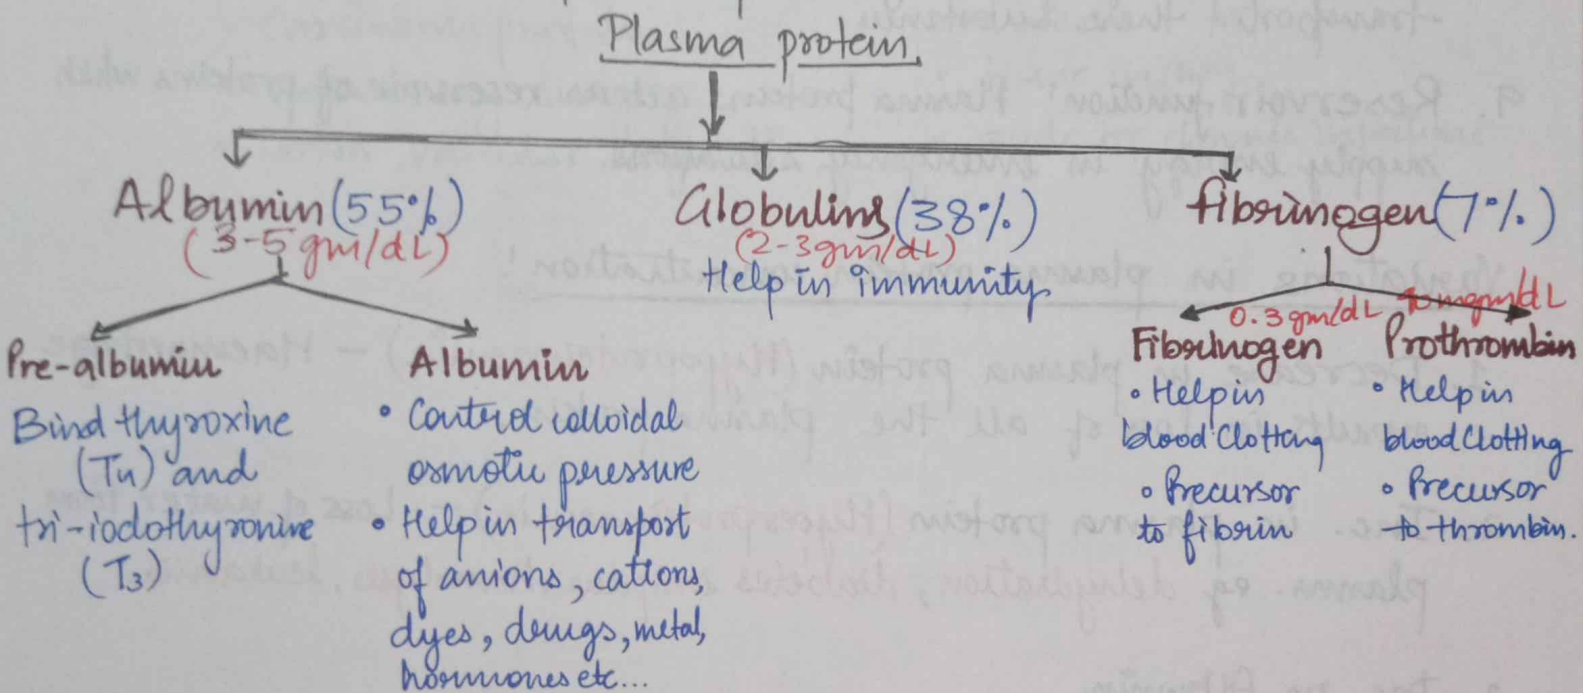 Plasma protein
Albumin (55%)
(3-5 gm/dL)
Globulins (38%)
(2-3 gm/dL)
Help in immunity
fibrinogen (7%)
Pre-albumin
Bind thyroxine
(T4) and
tri-iodothyronine
(T3)
Albumin
• Control colloidal
osmotic pressure
• Help in transport
of anions, cations,
dyes, drugs, metal,
hormones etc...
0.3 gm/dL
Fibrinogen
• Help in
blood clotting
• Precursor
to fibrin
mgm/dL
Prothrombin
• Help in
blood clotting
• Precursor
to thrombin.